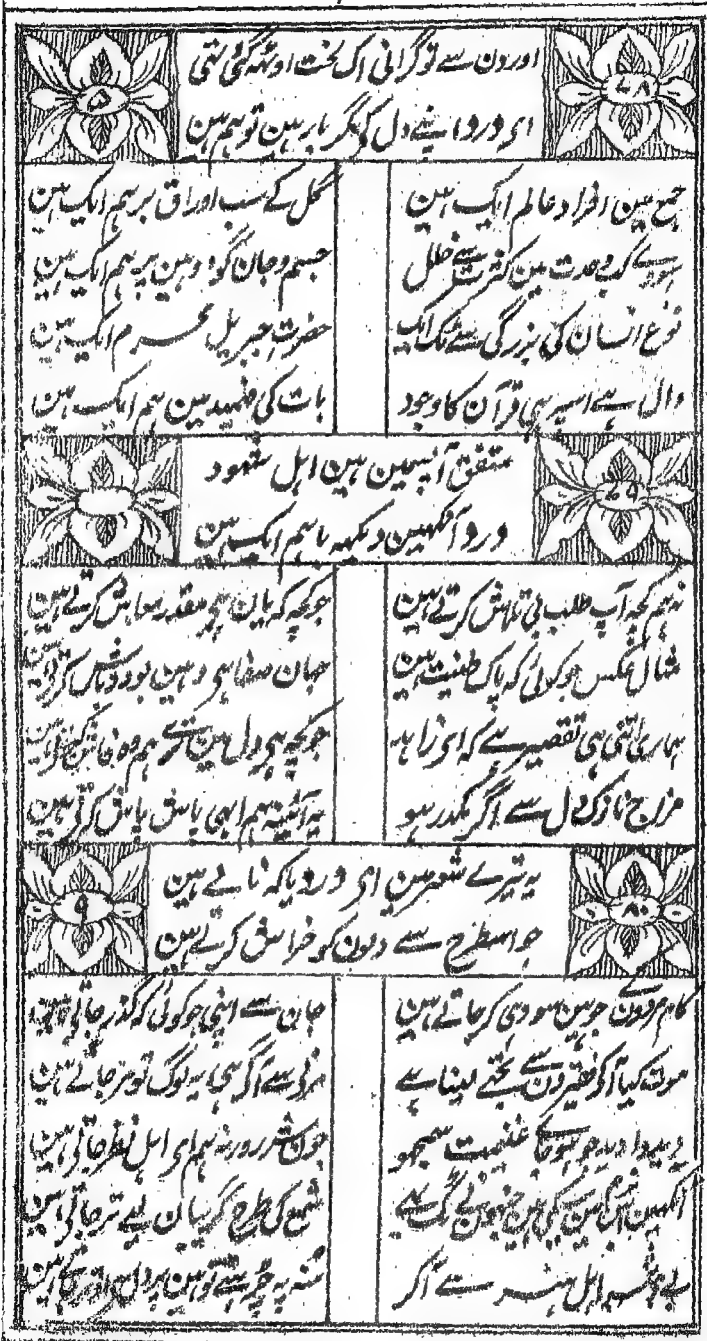 اور دن سے تو گرانی اک لخت اوٹھ گئی تھی
۷۸
۵
ای درد اپنے دل کے گر بار ہین تو ہم ہین
جمع مین افراد عالم ایک ہین
گل کے سب اوراق برہم ایک ہین
ہووے کب وحدت مین کثرت سے خلل
جسم و جان گو دو ہین پر ہم ایک ہین
نوع انسان کی بزرگی سے تک ایک
حضرت جبریل محرم ایک ہین
دال ہے اسپر ہی قرآن کا وجود
بات کی فہمید مین ہم ایک ہین
متفق آپسمین ہین اہل شہود
۷۹
درد آنکھین دیکھہ باہم ایک ہین
نہ ہم کچھ آپ طلب نی تلاش کرتے ہین
جو کچھ کہ یان ہی مقدر معاش کرتے ہین
مثال عکس جو کوئی کہ پاک طینت ہین
جہان صفا ہی وہین بود و باش کرتے ہین
ہماری اتنی ہی تقصیر ہے کہ ای زاہد
جو کچھ ہی دل مین ترے ہم وہ فاش کرتے ہین
مزاج نازک دل سے اگر مکدر ہو
یہ آئینہ ہم ابھی پاش پاش کرتے ہین
یہ تیرے شعر ہین ای درد یا کہ نالے ہین
۸۰
۹
جو اسطرح سے دلون کو خراش کرتے ہین
کام مردون کے جو ہین سو وہی کر جاتے ہین
جان سے اپنی جو کوئی کہ گذر جاتے ہین
موت کیا آ کے فقیرون سے تجھے لینا ہے
مرنے سے آگے ہی یہ لوگ تو مر جاتے ہین
دید وادید جو ہو جائے غنیمت سمجھو
جون شرر ورنہ ہم ای اہل نظر جاتے ہین
شمع کی طرح گریبان لیے تر جاتے ہین
بے ہنر اہل ہنر سے آ کر